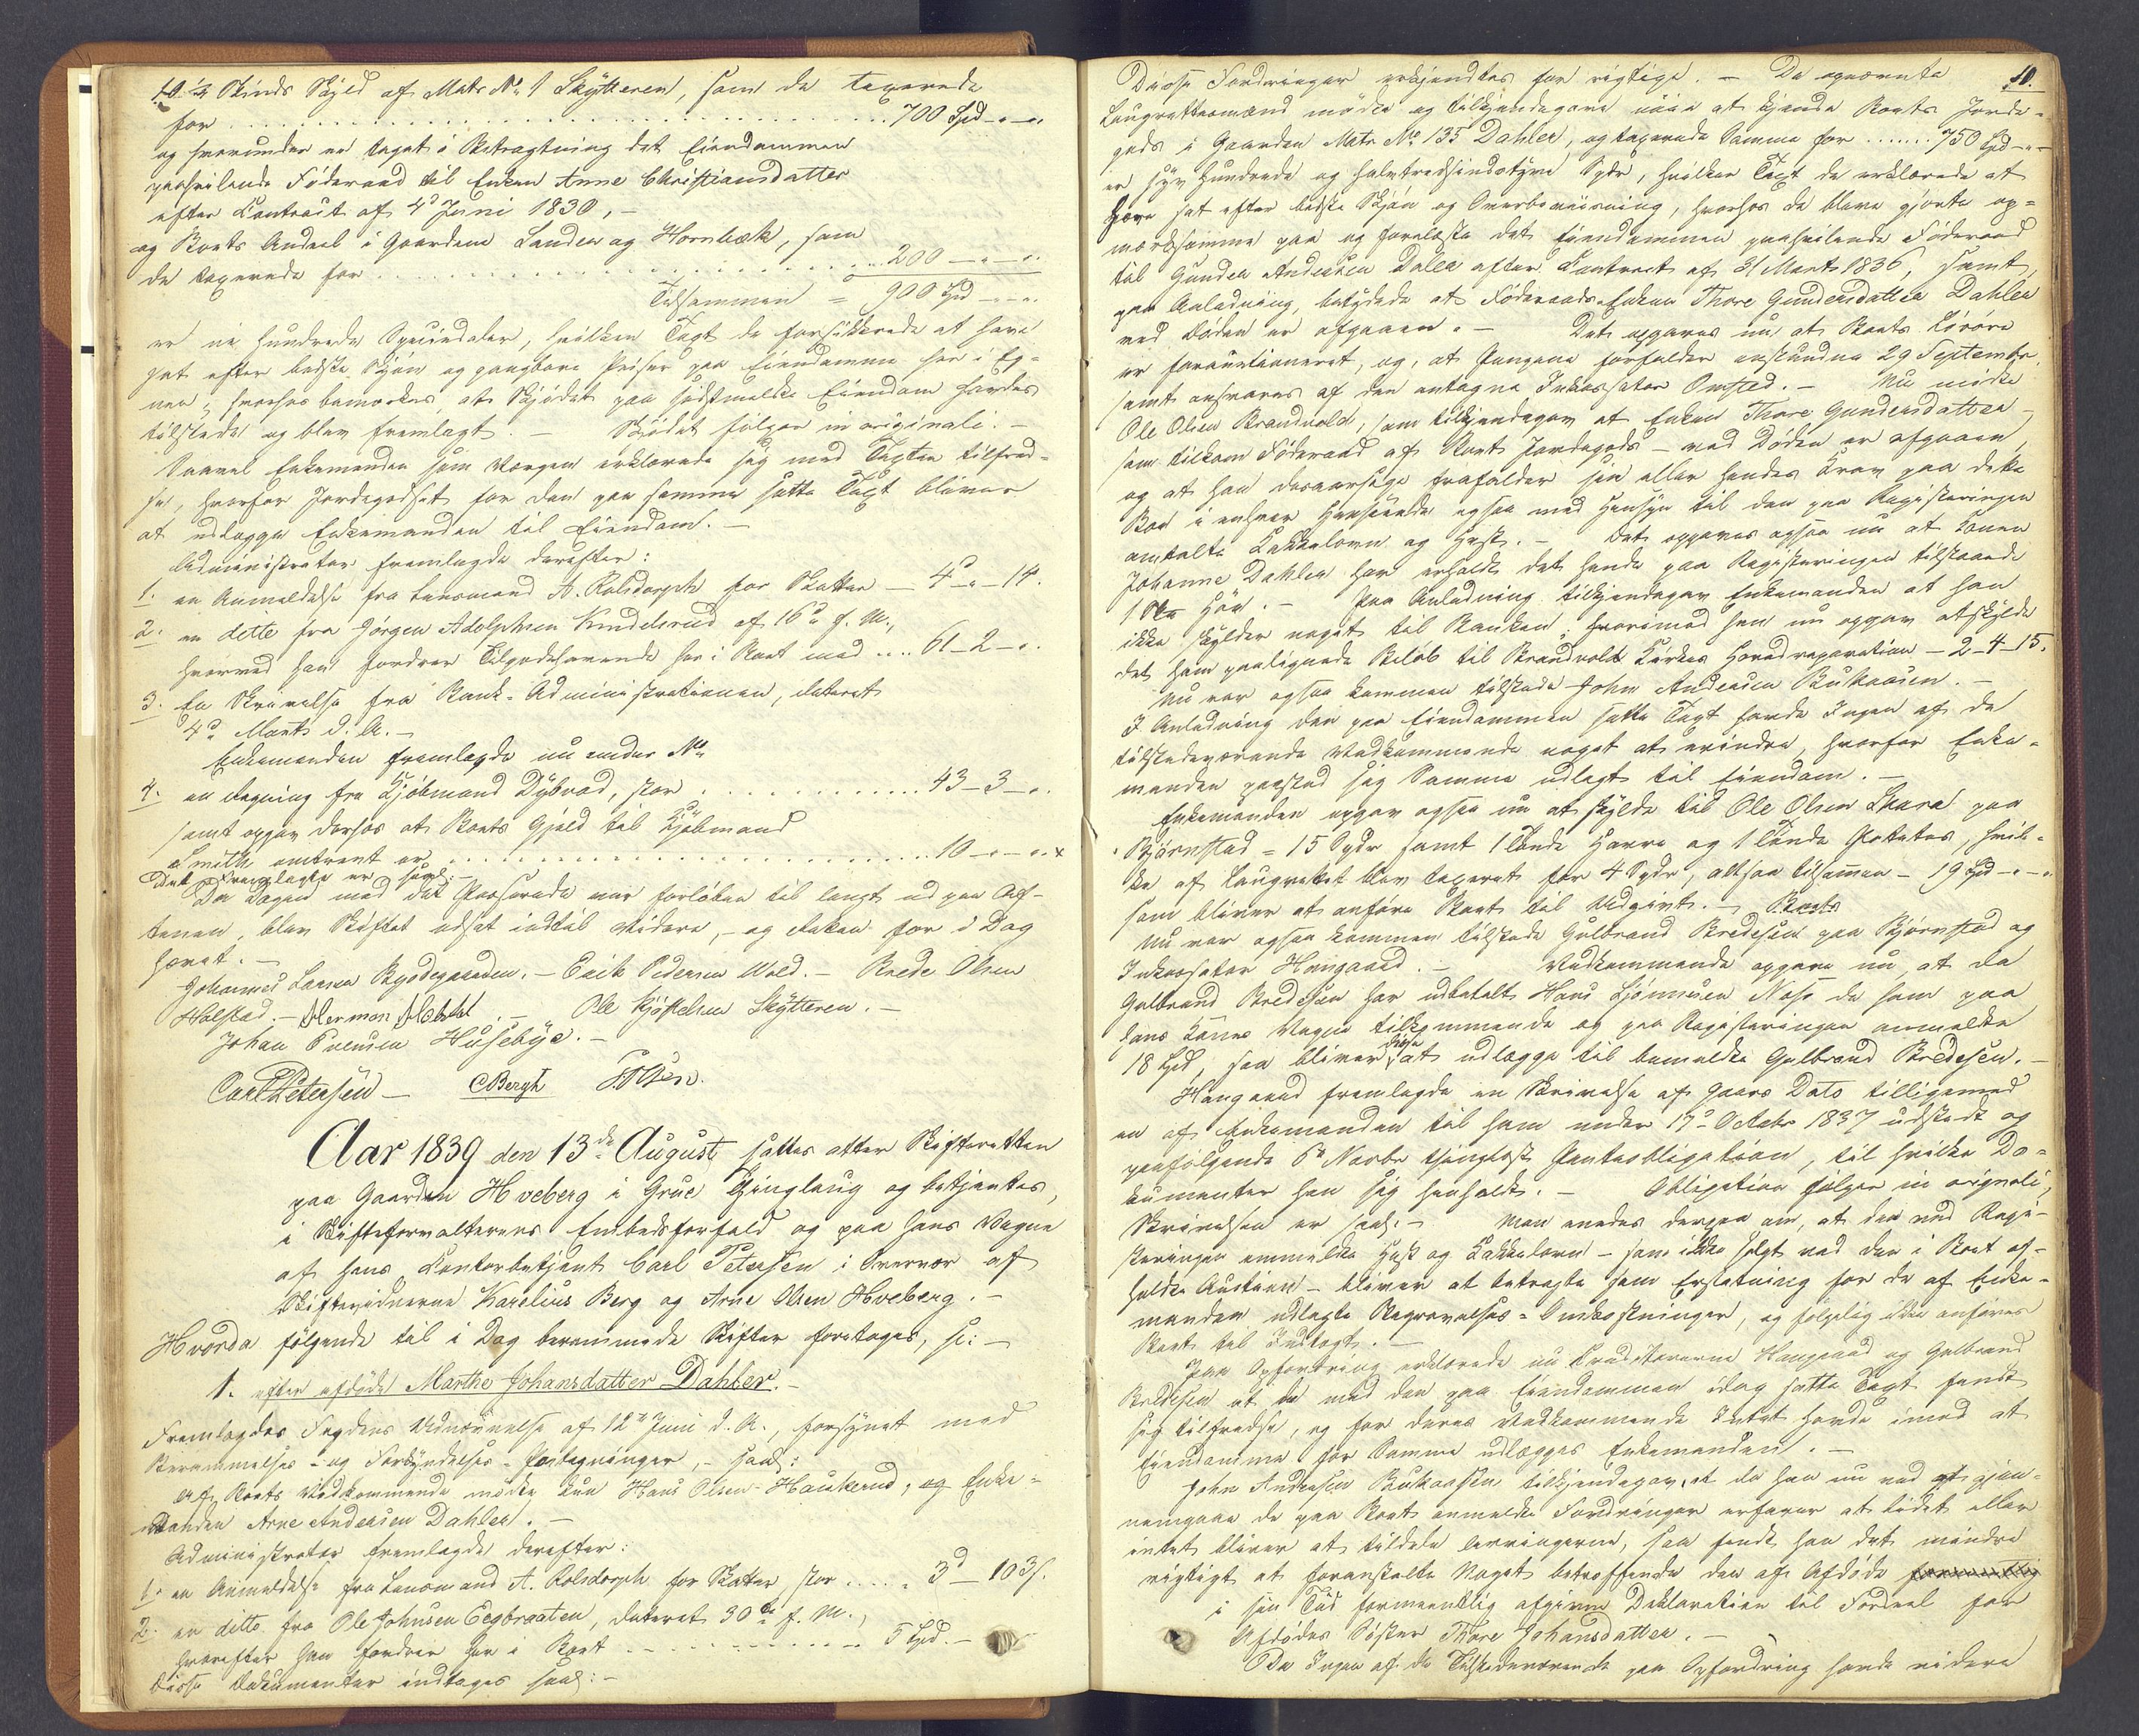 10 1/4 Skinds Skyld af Matr No 1 Skÿtteren, som de taxerede
for . . . . . . . . . . 700 Spd - " - ".
og hvorunder er taget i Betragtning det Eiendommen
paahvilende Föderaad til Enken Anne Christiansdatter
efter Contract af 4de Juni 1830, -
og Boets Andeel i Gaardene Landen og Hornbæk, som
de taxerede for . . . . . . . . . . 200 - " - ".
Tilsammen = 900 Spd - " - ".
er ni Hundrede Speciedaler, hvilken Taxt de forsikkrede at have
sat efter bedste Skjön og gangbare Priser paa Eiendomme her i Eg-
nen; hvorhos bemærkes, at Skjödet paa sidstmeldte Eiendom havdes
tilstede og blev fremlagt. - Skjödet fölger in originali. -
Saavel Enkemanden som Værgen erklærede sig med Taxten tilfred-
se, hvorfor Jordegodset for den paa samme satte Taxt bliver
at udlægge Enkemanden til Eiendom. -
Administrator fremlagde derefter:
1. en Anmeldelse fra Lensmand A. Rolsdorph for Skatter - 4d " - 14.
2. en ditto fra Jörgen Adolphsen Kindelsrud af 16de f. M.,
hvorved han fordrer Tilgodehavende her i Boet med .... 61 - 2 - ".
3. En Skrivelse fra Bank-Administrationen, dateret
4de Marts d. A. -
Enkemanden fremlagde nu under No
4. en Regning fra Kjöbmand Dÿbvad, stor . . . . . . 43 - 3 - ".
samt opgav derhos at Boets Gjæld til Kjöbmand
Smith omtrent er . . . . . . . . . . 10 - " - ". x
Det Fremlagte er saal: -
Da Dagen med det Passerede var forlöben til langt ud paa Af-
tenen, blev Skiftet udsat indtil videre, - og Retten for i Dag
hævet. -
Johannes Larsen Bÿodegaarden. - Erik Pedersen Wold. - Brede Olsen
Holstad. - Herman - Ole Kjöstelsen Skÿtteren. -
Johan Evensen Husebÿe. -
Carl Petersen - CBergh
Aar 1839 den 13de August sattes atter Skifteretten
paa Gaarden Hveberg i Grue Thinglaug og betjentes,
i Skifteforvalterens Embedsforfald og paa hans Vegne
af hans Contorbetjent Carl Petersen i Overvær af
Skiftevidnerne Karelius Berg og Arne Olsen Hveberg. -
Hvorda fölgende til i Dag berammede Skifter foretoges, sc: -
1. efter afdöde Marthe Johansdatter Dahlen. -
Fremlagdes Fogdens Udnævnelse af 12te Juni d. A., forsÿnet med
Berammelses- og Forkÿndelses-Paategninger, - saal:
Af Boets Vedkommende mödte kun Hans Olsen Haukerud, og Enke-
manden Arne Andersen Dahlen. -
Administrator fremlagde derefter:
1. en Anmeldelse fra Lensmand A. Rolsdorph for Skatter stor . . . . 3d - 103s.
2. en ditto fra Ole Johnsen Eegbraaten, dateret 30te f. M.,
hvorefter han fordrer her i Boet . . . . . . . . 5 Spd. -
Disse Dokumenter indtages saal: -
10.
Disse Fordringer erkjendtes for rigtige. - De opnævnte
Laugrettesmænd mödte og tilkjendegave ........ at kjende Boets Jorde-
gods i Gaarden Matr No 135 Dahlen, og taxerede Samme for ....... 750 Spd - " -
er sÿv Hundrede og halvtredsindstÿve Spdr, hvilken Taxt de erklærede at
have sat efter bedste Skjön og Overbeviisning, hvorhos de bleve gjorte op-
mærksomme paa og forelæste det Eiendommen paahvilende Föderaad
til Gunder Andersen Dalen efter Contract af 31 Marts 1836, samt,
paa Anledning, betÿdede at Föderaads-Enken Thore Gundersdatter Dahlen
ved Döden er afgaaen. - Det opgaves nu at Boets Lösöre
er forauctioneret, og, at Pengene forfalder anstundne 29 September
samt ansvares af den antagne Inkassator Omsted. - Nu mödte
Ole Olsen Brandvold, som tilkjendegav at Enken Thore Gundersdatter -
som tilkom Föderaad af Boets Jordegods - ved Döden er afgaaen
og at han desaarsage frafalder sin eller hendes Krav paa dette
Boe i enhver Henseende ogsaa med Hensÿn til den paa Registeringen
omtalte Kakkelovn og Hest. - Det opgaves ogsaa nu at Konen
Johanne Dahlen har erholdt det hende paa Registeringen tilstaaede
1 Hör. - Paa Anledning tilkjendegav Enkemanden at han
ikke skÿlder noget til Banken; hvorimod han nu opgav at skÿlde
det ham paalignede Belöb til Brandvold Kirkes Hovedreparation - 2 - 4 - 15.
Nu var ogsaa kommen tilstede John Andersen Bukaasen. -
I Anledning den paa Eiendommen satte Taxt havde Ingen af de
tilstedeværende Vedkommende noget at erindre, hvorfor Enke-
manden paastod sig Samme udlagt til Eiendom. -
Enkemanden opgav ogsaa nu at skÿlde til Ole Olsen Skara paa
Björnstad = 15 Spdr samt 1 Tönde Havre og 1 Tönde Potetes, hvil-
ke af Laugrettet blev taxeret for 4 Spdr, altsaa tilsammen - 19 Spd - " - "
som bliver at anföre Boet til Udgivt. -
Nu var ogsaa kommen tilstede Gulbrand Bredesen paa Björnstad og
Inkassator Haugaard. - Vedkommende opgave nu, at da
Gulbrand Bredesen har udbetalt Hans Sjönnesen Næss de ham paa
hans Kones Vegne tilkommende og paa Registeringen anmeldte
18 Spd, saa bliver disse at udlægge til bemeldte Gulbrand Bredesen. -
Haugaard fremlagde en Skrivelse af Gaars Dato tilligemed
en af Enkemanden til ham under 17de October 1837 udstedt og
paafölgende 6te Novbr thinglæst Panteobligation, til hvilke Do-
kumenter han sig henholdt. - Obligation fölger in orignali,
Skrivelsen er saal: - Man enedes derpaa om, at den ved Regi-
steringen anmeldte Hest og Kakkelovn - som ikke solgt ved den i Boet af-
holdte Auction - bliver at betragte som Erstatning for de af Enke-
manden udlagte Begravelses-Omkostninger, og fölgelig ikke anföres
Boet til Indtægt. -
Paa Opfordring erklærede nu Creditorerne Haugaard og Gulbrand
Bredesen at de med den paa Eiendommen idag satte Taxt fandt
sig tilfredse, og for deres Vedkommende Intet havde imod at
Eiendomme for Samme udlægges Enkemanden. -
John Andersen Bukaasen tilkjendegav, at da han nu ved at gjen-
nemgaae de paa Boet anmeldte Fordringer erfarer at lidet eller
intet bliver at tildele Arvingerne, saa fandt han det mindre
rigtigt at foranstalte Noget betræffende den af Afdöde
i sin Tiid formeentlig afgivne Deklaration til Fordeel for
Afdödes Söster Thore Johansdatter. -
Da Ingen af de Tilstedeværende paa Opfordring havde videre